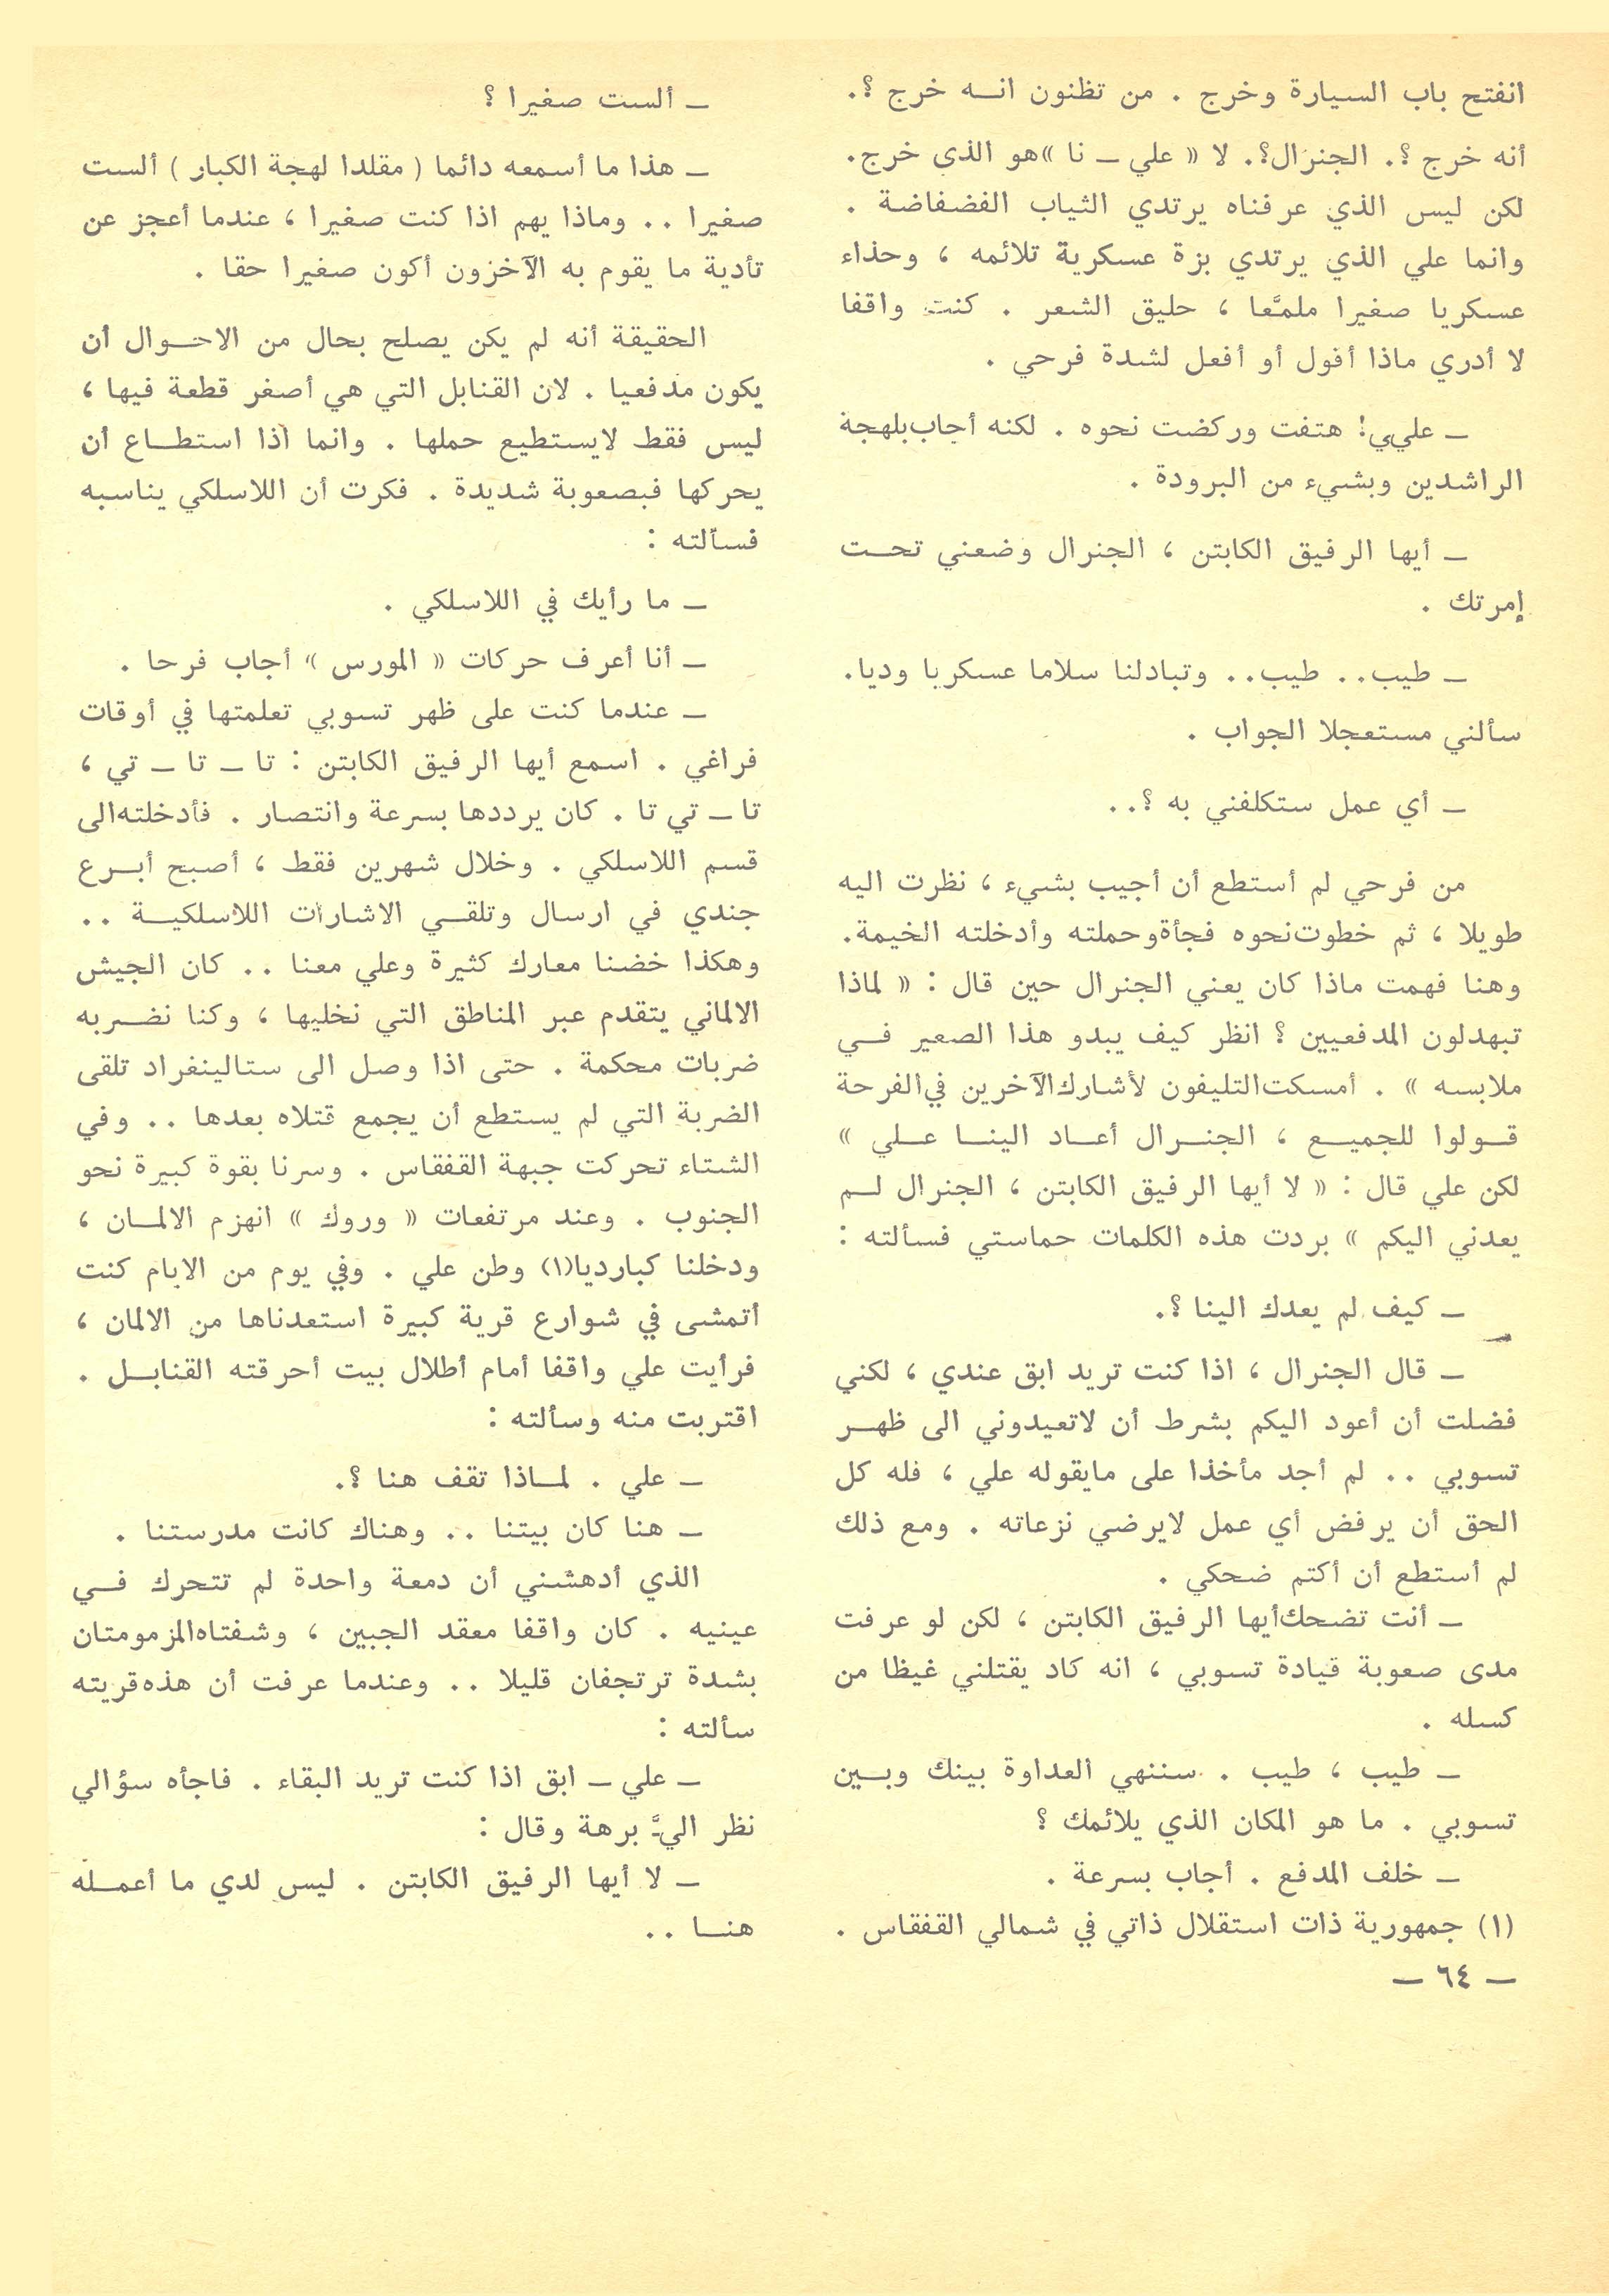 انفتح باب السيارة وخرج . من تظنون انه خرج ؟.
أنه خرج ؟. الجنرال؟. لا « علي – نا »هو الذي خرج.
لكن ليس الذي عرفناه يرتدي الثياب الفضفاضة .
وانما علي الذي يرتدي بزة عسكرية تلائمه ، وحذاء
عسكريا صغيرا ملمَّعا ، حليق الشعر . كنت واقفا
لا أدري ماذا أقول أو أفعل لشدة فرحي .
– عليي! هتفت وركضت نحوه . لكنه أجاب بلهجة
الراشدين وبشيء من البرودة .
– أيها الرفيق الكابتن ، الجنرال وضعني تحت
إمرتك .
– طيب.. طيب.. وتبادلنا سلاما عسكريا وديا.
سألني مستعجلا الجواب .
– أي عمل ستكلفني به ؟..
من فرحي لم أستطع أن أجيب بشيء ، نظرت اليه
طويلا ، ثم خطوت نحوه فجأة وحملته وأدخلته الخيمة.
وهنا فهمت ماذا كان يعني الجنرال حين قال : « لماذا
تبهدلون المدفعيين ؟ انظر كيف يبدو هذا الصغير في
ملابسه » . أمسكت التليفون لأشارك الآخرين في الفرحة
قولوا للجميع ، الجنرال أعاد الينا علي »
لكن علي قال : « لا أيها الرفيق الكابتن ، الجنرال لم
يعدني اليكم » بردت هذه الكلمات حماستي فسألته :
– كيف لم يعدك الينا ؟.
– قال الجنرال ، اذا كنت تريد ابق عندي ، لكني
فضلت أن أعود اليكم بشرط أن لاتعيدوني الى ظهر
تسوبي .. لم أجد مأخذا على مايقوله علي ، فله كل
الحق أن يرفض أي عمل لايرضي نزعاته . ومع ذلك
لم أستطع أن أكتم ضحكي .
– أنت تضحك أيها الرفيق الكابتن ، لكن لو عرفت
مدى صعوبة قيادة تسوبي ، انه كاد يقتلني غيظا من
كسله .
– طيب ، طيب . سننهي العداوة بينك وبين
تسوبي . ما هو المكان الذي يلائمك ؟
– خلف المدفع . أجاب بسرعة .
(١) جمهورية ذات استقلال ذاتي في شمالي القفقاس .
– ٦٤ –
– ألست صغيرا ؟
– هذا ما أسمعه دائما ( مقلدا لهجة الكبار ) ألست
صغيرا .. وماذا يهم اذا كنت صغيرا ، عندما أعجز عن
تأدية ما يقوم به الآخرون أكون صغيرا حقا .
الحقيقة أنه لم يكن يصلح بحال من الاحوال أن
يكون مدفعيا . لان القنابل التي هي أصغر قطعة فيها ،
ليس فقط لايستطيع حملها . وانما أذا استطاع أن
يحركها فبصعوبة شديدة . فكرت أن اللاسلكي يناسبه
فسألته :
– ما رأيك في اللاسلكي .
– أنا أعرف حركات « المورس » أجاب فرحا .
– عندما كنت على ظهر تسوبي تعلمتها في أوقات
فراغي . اسمع أيها الرفيق الكابتن : تا – تا – تي ،
تا – تي تا . كان يرددها بسرعة وانتصار . فأدخلته الى
قسم اللاسلكي . وخلال شهرين فقط ، أصبح أبرع
جندي في ارسال وتلقي الاشارات اللاسلكية ..
وهكذا خضنا معارك كثيرة وعلي معنا .. كان الجيش
الالماني يتقدم عبر المناطق التي نخليها ، وكنا نضربه
ضربات محكمة . حتى اذا وصل الى ستالينغراد تلقى
الضربة التي لم يستطع أن يجمع قتلاه بعدها .. وفي
الشتاء تحركت جبهة القفقاس . وسرنا بقوة كبيرة نحو
الجنوب . وعند مرتفعات « وروك » انهزم الالمان ،
ودخلنا كبارديا(١) وطن علي . وفي يوم من الايام كنت
أتمشى في شوارع قرية كبيرة استعدناها من الالمان ،
فرأيت علي واقفا أمام أطلال بيت أحرقته القنابل .
اقتربت منه وسألته :
– علي . لماذا تقف هنا ؟.
– هنا كان بيتنا .. وهناك كانت مدرستنا .
الذي أدهشني أن دمعة واحدة لم تتحرك في
عينيه . كان واقفا معقد الجبين ، وشفتاه المزمومتان
بشدة ترتجفان قليلا .. وعندما عرفت أن هذه قريته
سألته :
– علي – ابق اذا كنت تريد البقاء . فاجأه سؤالي
نظر اليَّ برهة وقال :
– لا أيها الرفيق الكابتن . ليس لدي ما أعمله
هنا ..